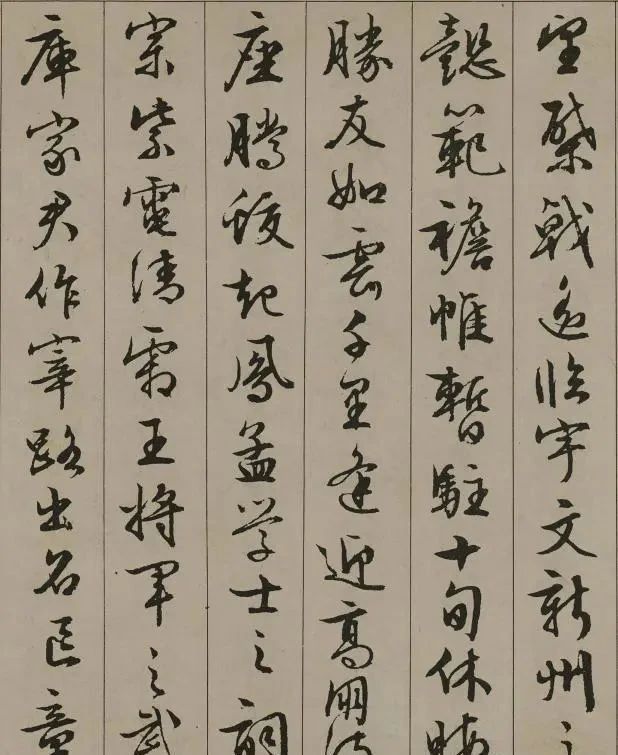 望棨戟遙臨宇文新州之
懿範襜帷暫駐十旬休暇
勝友如雲千里逢迎高朋滿
座騰蛟起鳳孟學士之詞
宗紫電清霜王將軍之武
庫家君作宰路出名區童